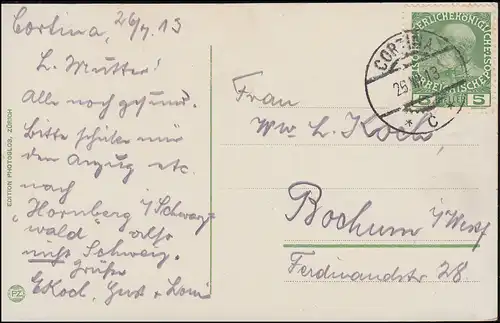 Cortina, 26/7. 13
L. Mutter!
Alle noch gesund.
Bitte schicke mir
den Anzug etc.
nach
"Hornberg i/Schwarz-
wald" also
nicht Schweiz.
Grüße
EKoch, Gust + Loni
EDITION PHOTOGLOB, ZÜRICH
PZ
KAISERLICHE KÖNIGLICHE
ÖSTERREICHISCHE POST
5 5
CORTINA
26 VII 13
* C
Frau
Ww. L. Koch
Bochum i/Westf
Ferdinandstr 28.